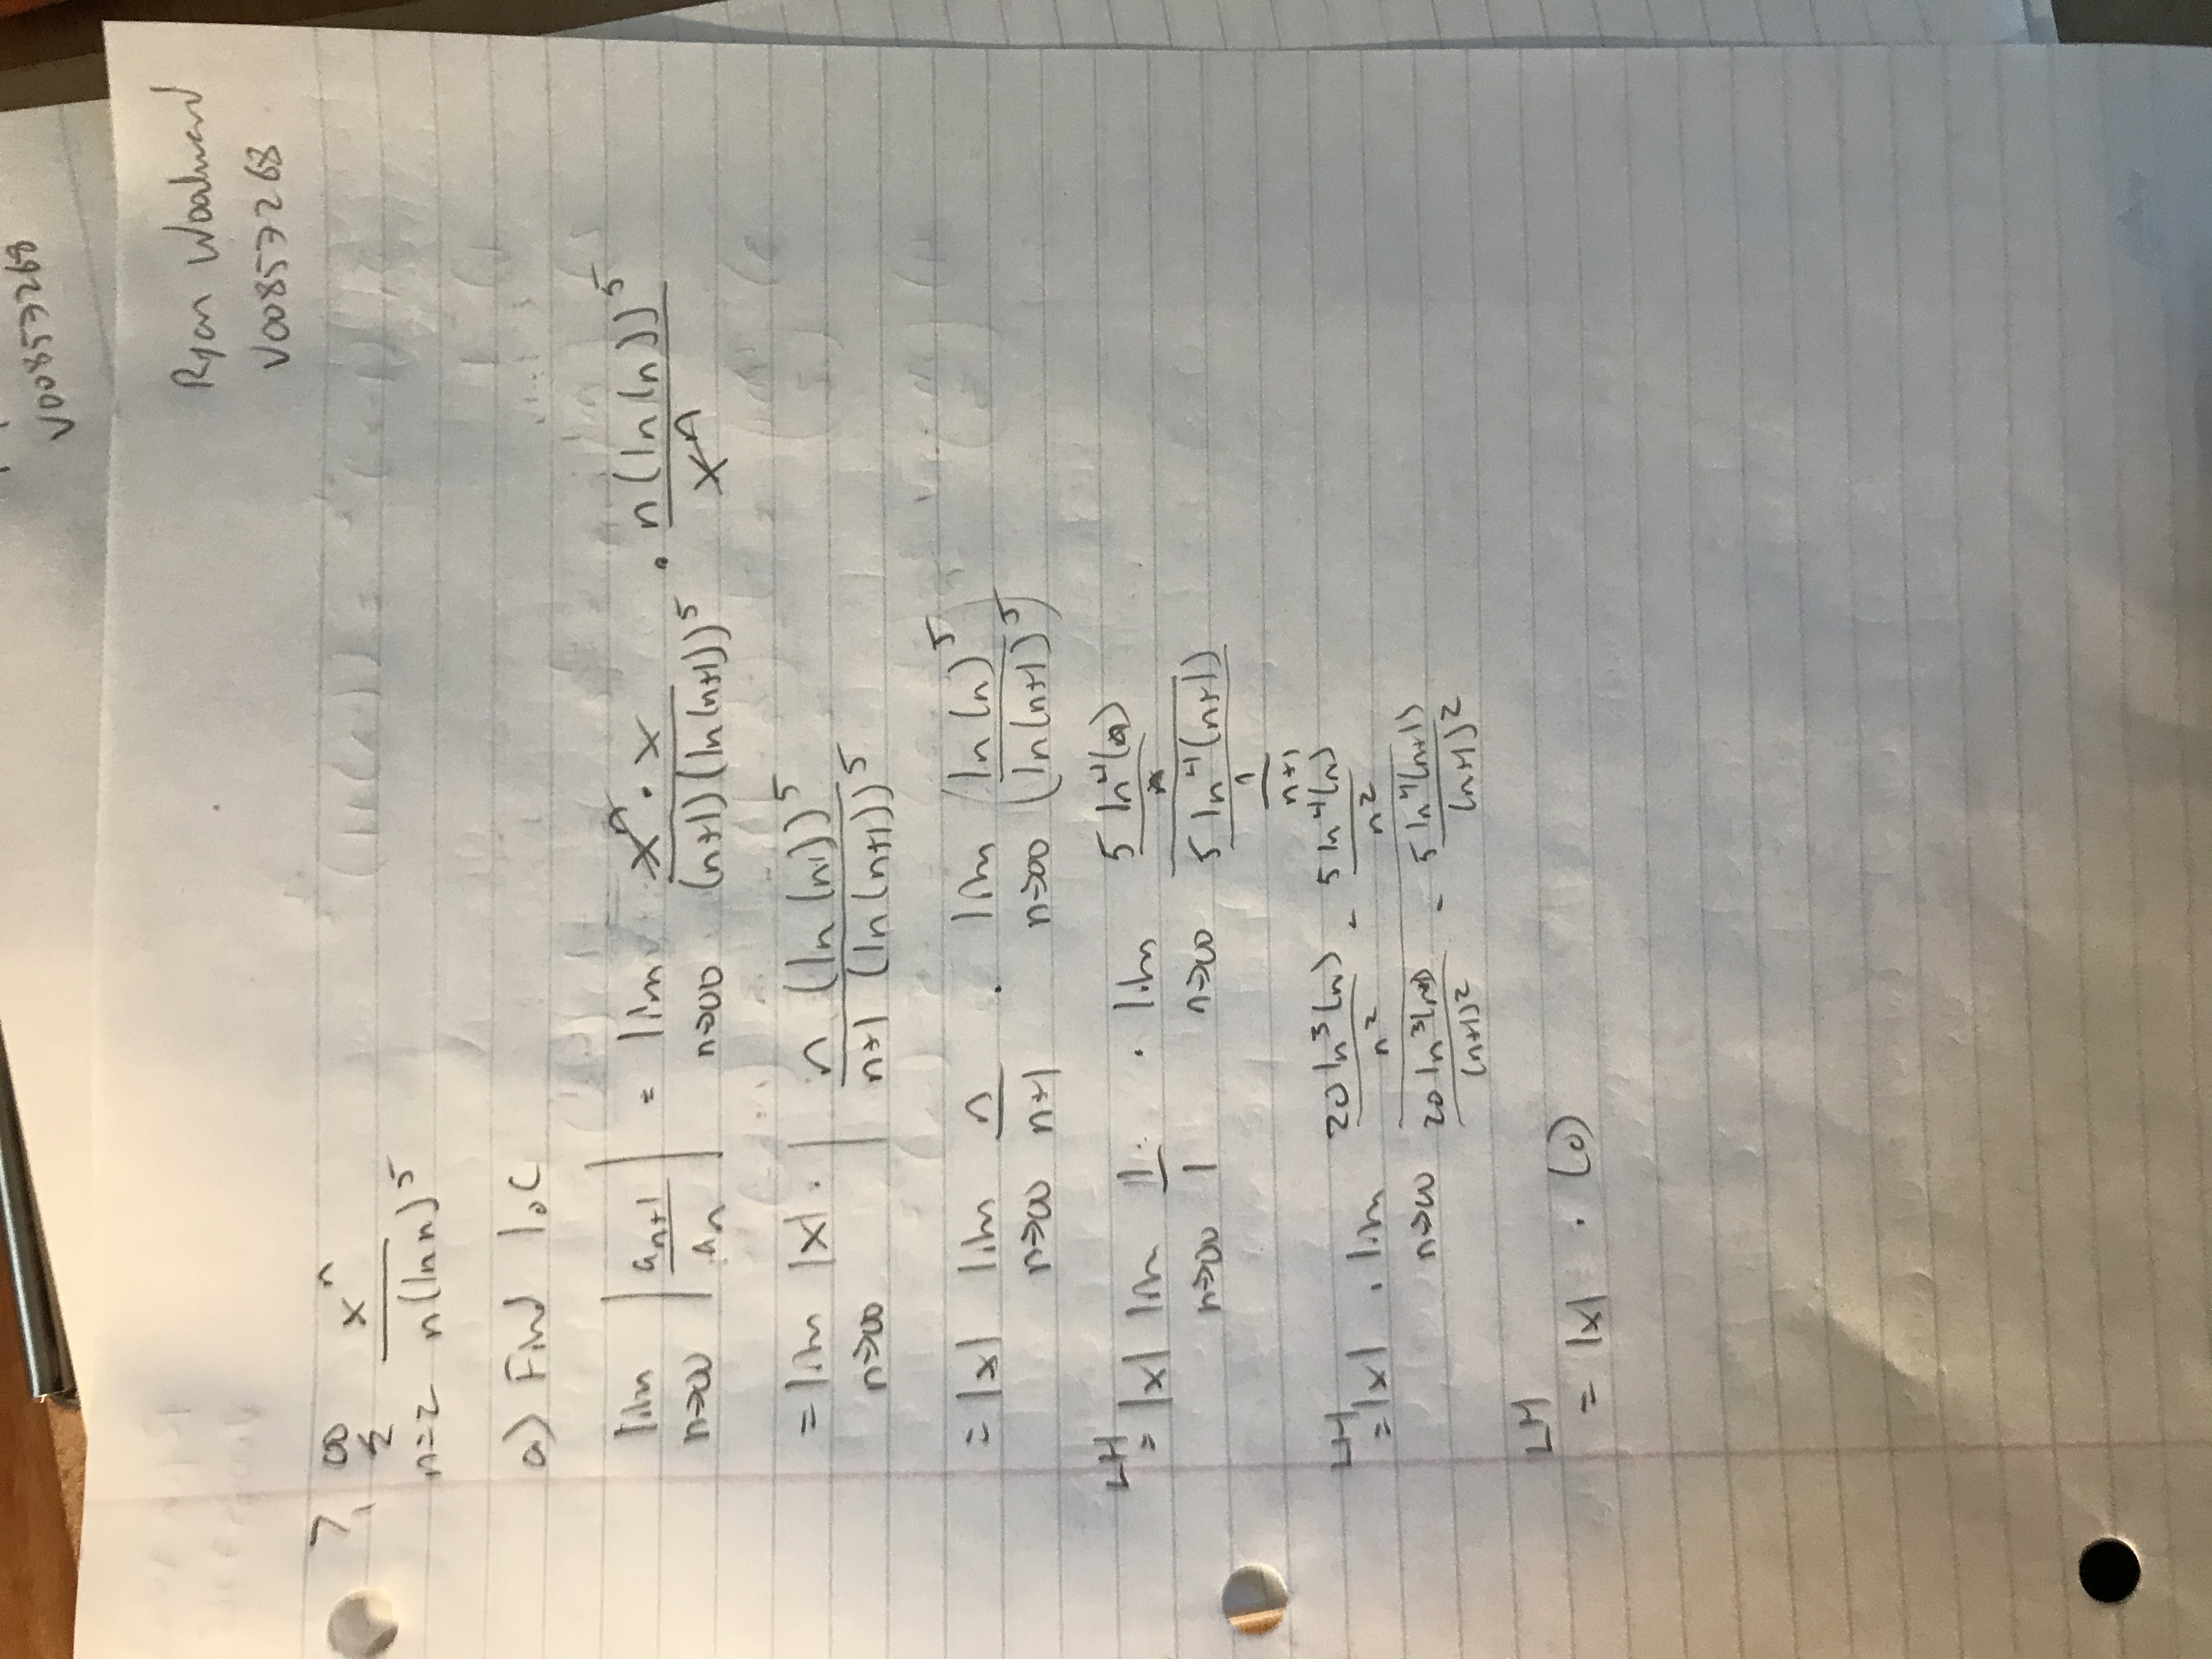 V00857268
Ryan Woodward
V00857268
7. ∞ Σ n=2 x^n / n(ln n)^5
a) Find IoC
lim n→∞ |a_{n+1} / a_n| = lim n→∞ x^n · x / (n+1)(ln(n+1))^5 · n(ln(n))^5 / x^n
= lim n→∞ |x| · | n (ln(n))^5 / n+1 (ln(n+1))^5
= |x| lim n→∞ n / n+1 · lim n→∞ (ln(n)^5 / (ln(n+1)^5)
LH = |x| lim n→∞ 1 / 1 · lim n→∞ 5 ln^4(n) / n / 5 ln^4(n+1) / 1 / n+1
LH = |x| · lim n→∞ 20 ln^3(n) / n^2 - 5 ln^4(n) / n^2 / 20 ln^3(n+1) / (n+1)^2 - 5 ln^4(n+1) / (n+1)^2
LH = |x| · (0)